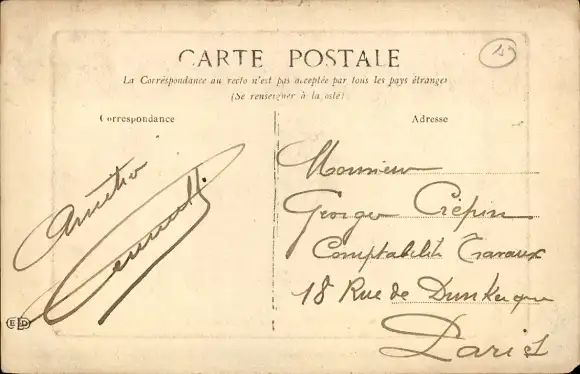 CARTE POSTALE
La Correspondance au recto n'est pas acceptée par tous les pays étrangers
(Se renseigner à la poste)
Correspondance
Adresse
Monsieur
Georges Crépin
Comptabilité Travaux
18 Rue de Dunkerque
Paris
Amitié
ELD